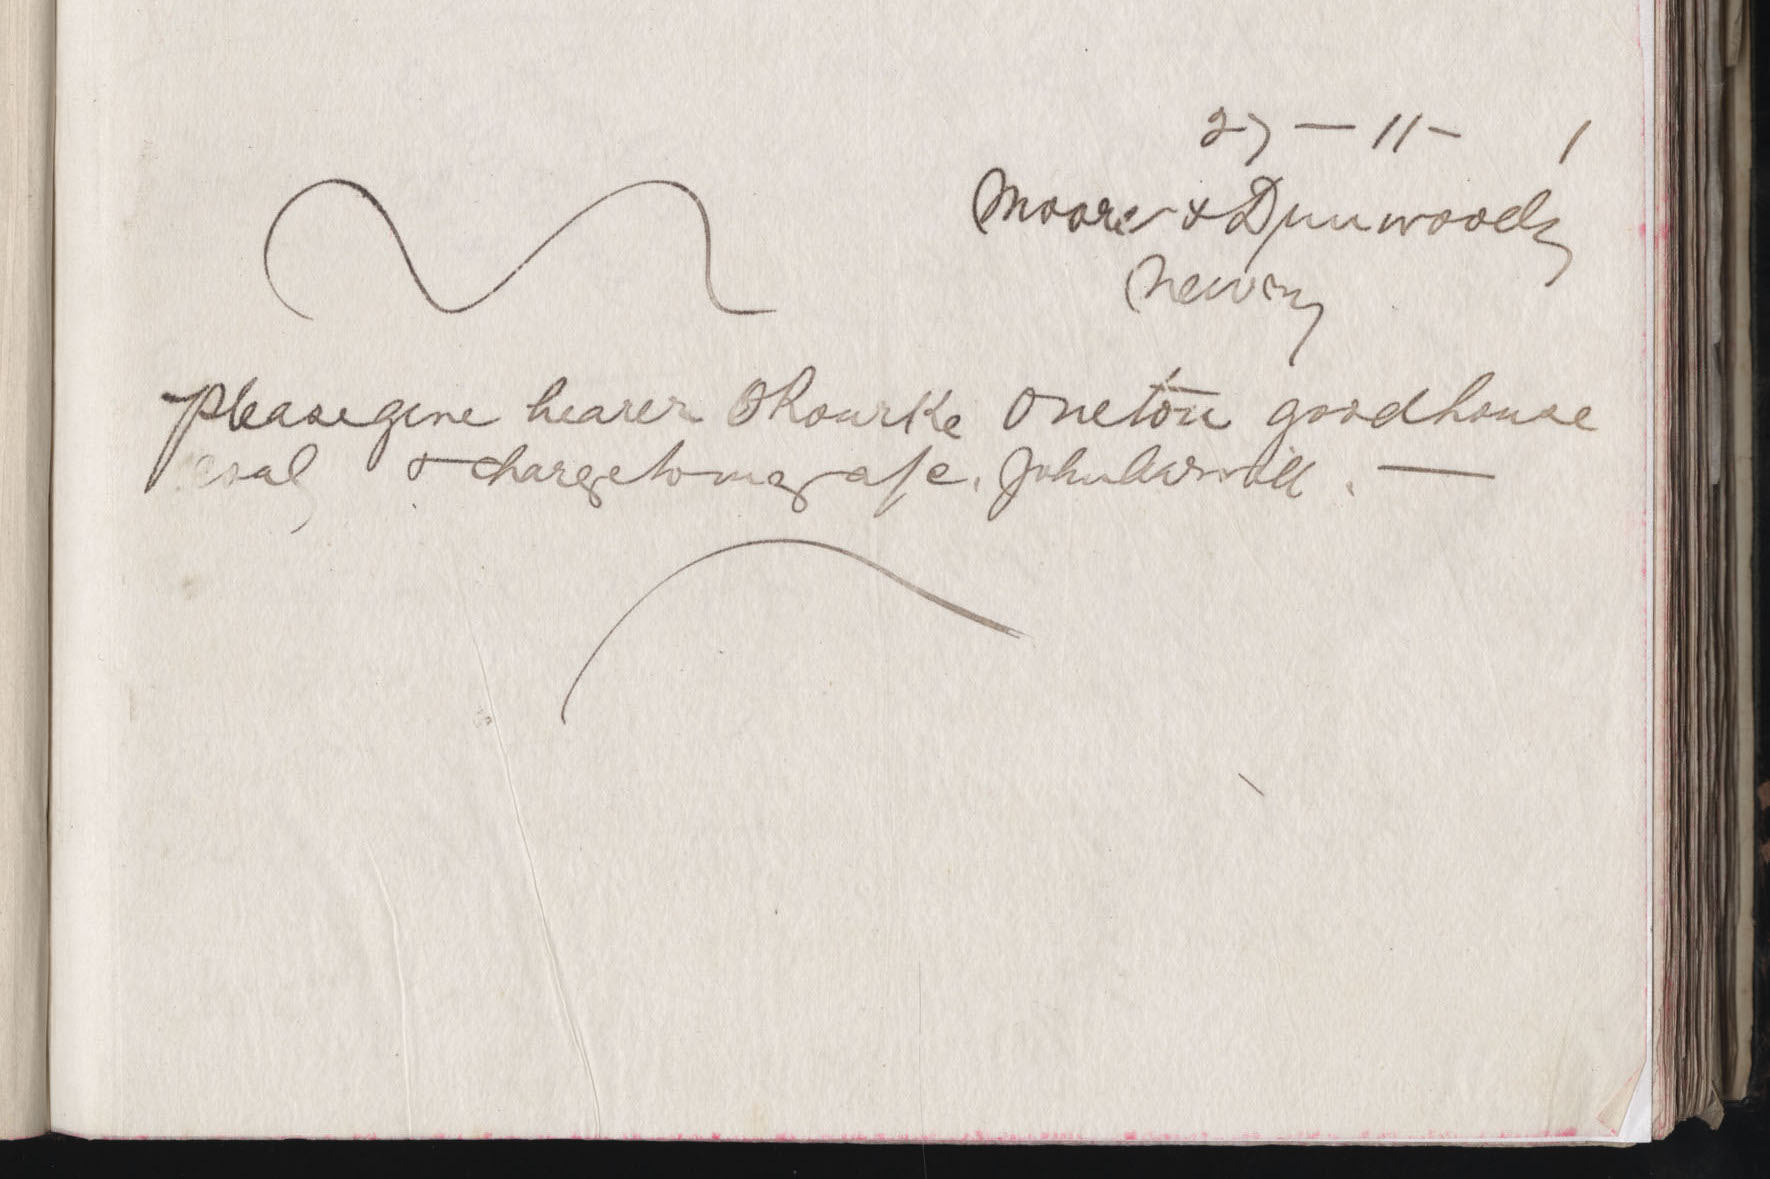 27 - 11 - 1
Moore & Dunwoody
Newry
please give bearer O Rourke one ton good house
coal & charge to my a/c. John